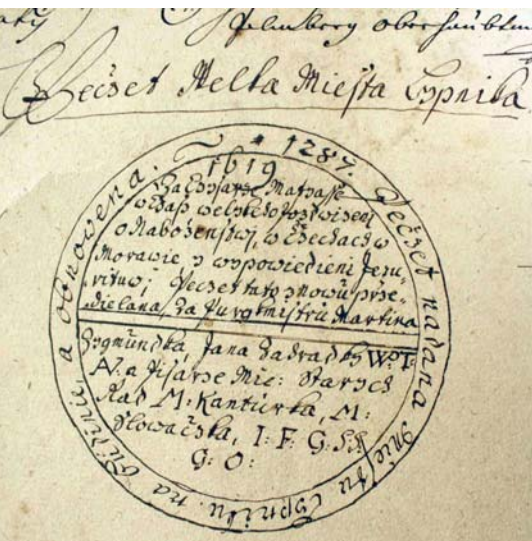 Palmberg oberhaubtm
Peczet Melka Miesta Lypnika
* 1287. Peczet nadana Miestu Lypniku na Hidiniu, a obnowena.
1619
Za Cysarze Matyasse
w czas welikeho pozdwizeni
o Nabozenstwi, w Czechach w
Morawie y wypowiedieni Jezu-
wituw; Peczet tato znowu prze-
dielana, Za Purgkmistru Martina
Zygmundka, Jana Zadradky W: I:
N: a Pisarze Mie: Starych
Rad M: Kanturka, M:
Slowaczka, I: F: G:
G: O: